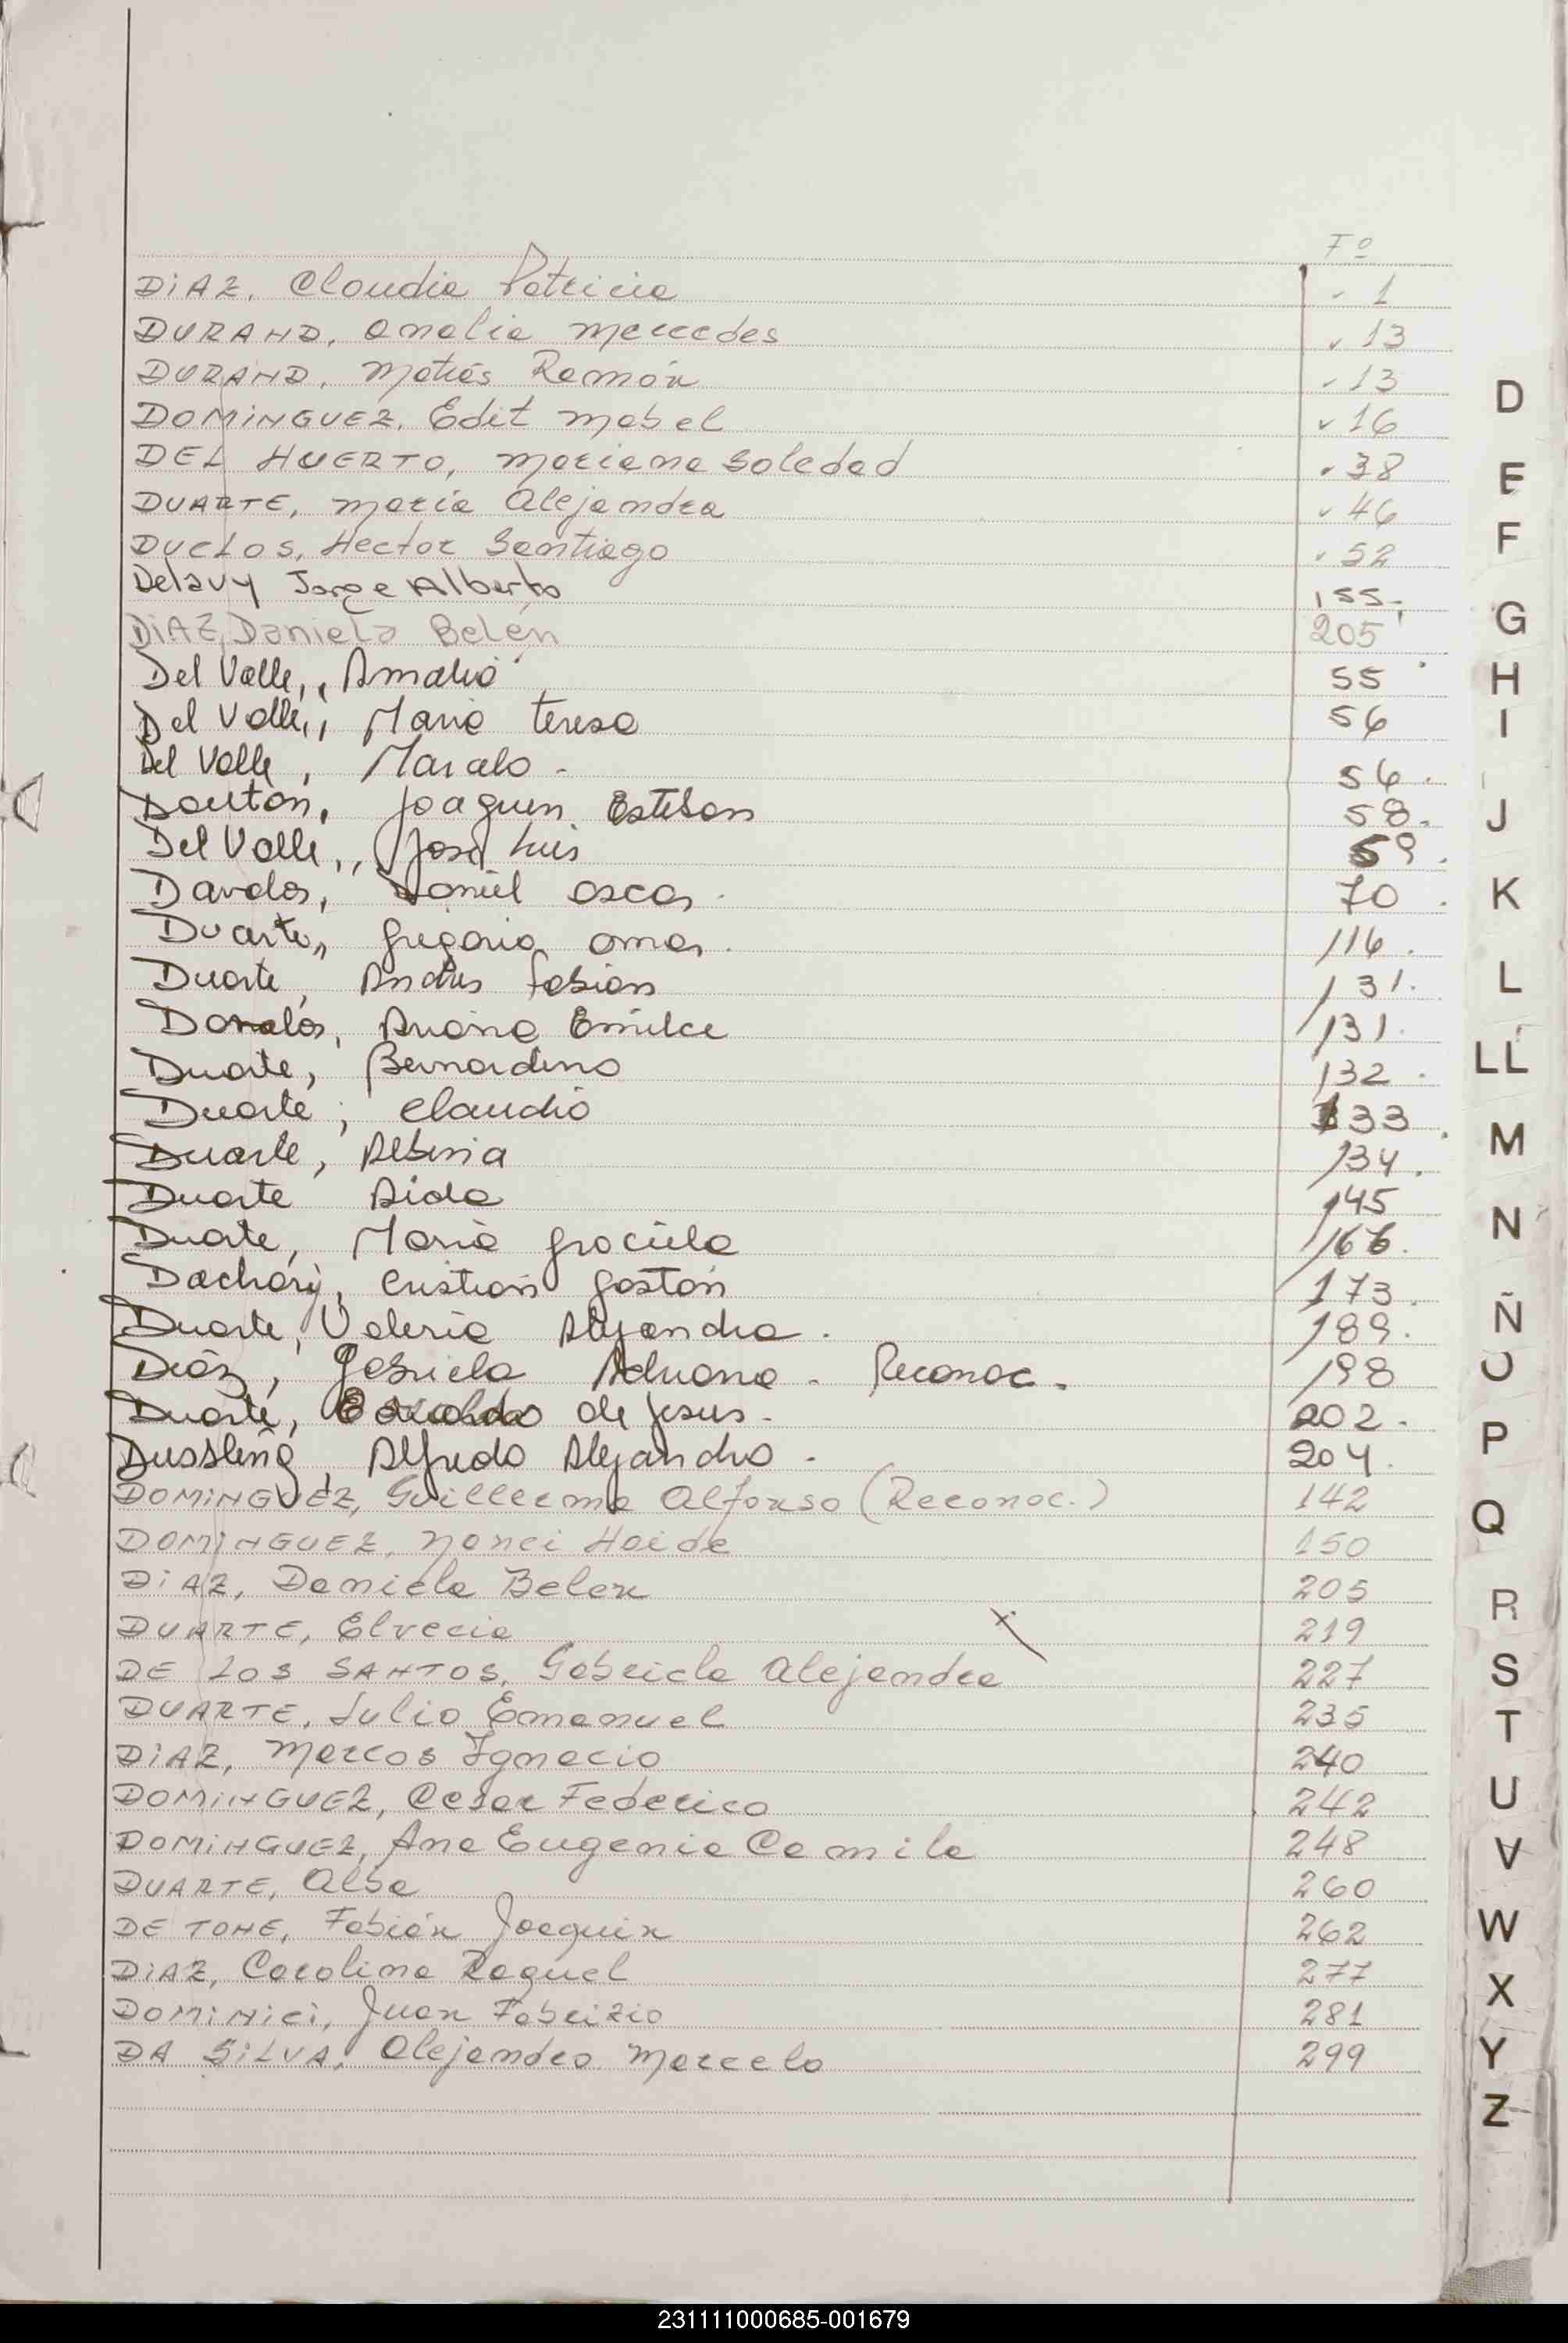 Fº
DiAZ, Claudia Patricia 1
DURAND, Amalia Mercedes 13
DURAND, Matías Ramón 13
DOMiNGUEZ, Edit Mabel 16
DEL HUERTO, Mariana Soledad 38
DUARTE, María Alejandra 46
DUCLOS, Hector Santiago 52
Delavy Jorge Alberto 155
DiAZ, Daniela Belén 205
Del Valle, Amalio 55
Del Valle, Maria Teresa 56
Del Valle, Marcelo - 56.
Joaquin Esteban 58.
Del Valle, Jose Luis 59.
Davalos, Daniel Oscar 70.
Duarte, Gregorio Omar. 116.
Duarte, Andres Fabian 131.
Davalos, Emilce 131.
Duarte, Bernardino 132.
Duarte, Claudio 133.
Duarte, Albina 134.
Duarte Aida 145
Duarte, Maria Graciela 166.
Dachary, Cristian Gaston 173.
Duarte, Valeria Alejandra. 189.
Diaz, Gabriela Adriana. Reconoc. 198
Duarte, de Jesus. 202.
Alfredo Alejandro. 204.
DOMiNGUEZ, Guillermo Alfonso (Reconoc.) 142
DOMiNGUEZ, Nanci Haide 150
DiAZ, Daniela Belen 205
DUARTE, Elvecia 219
DE LOS SANTOS, Gabriela Alejandra 227
DUARTE, Julio Emanuel 235
DiAZ, Marcos Ignacio 240
DOMiNGUEZ, Cesar Federico 242
DOMiNGUEZ, Ana Eugenia Camila 248
DUARTE, Alba 260
DE TONE, Fabián Joaquin 262
DiAZ, Carolina Raquel 277
DOMiNiCi, Juan Fabrizio 281
DA SiLVA, Alejandro Marcelo 299
D
E
F
G
H
I
J
K
L
LL
M
N
Ñ
O
P
Q
R
S
T
U
V
W
X
Y
Z
231111000685-001679